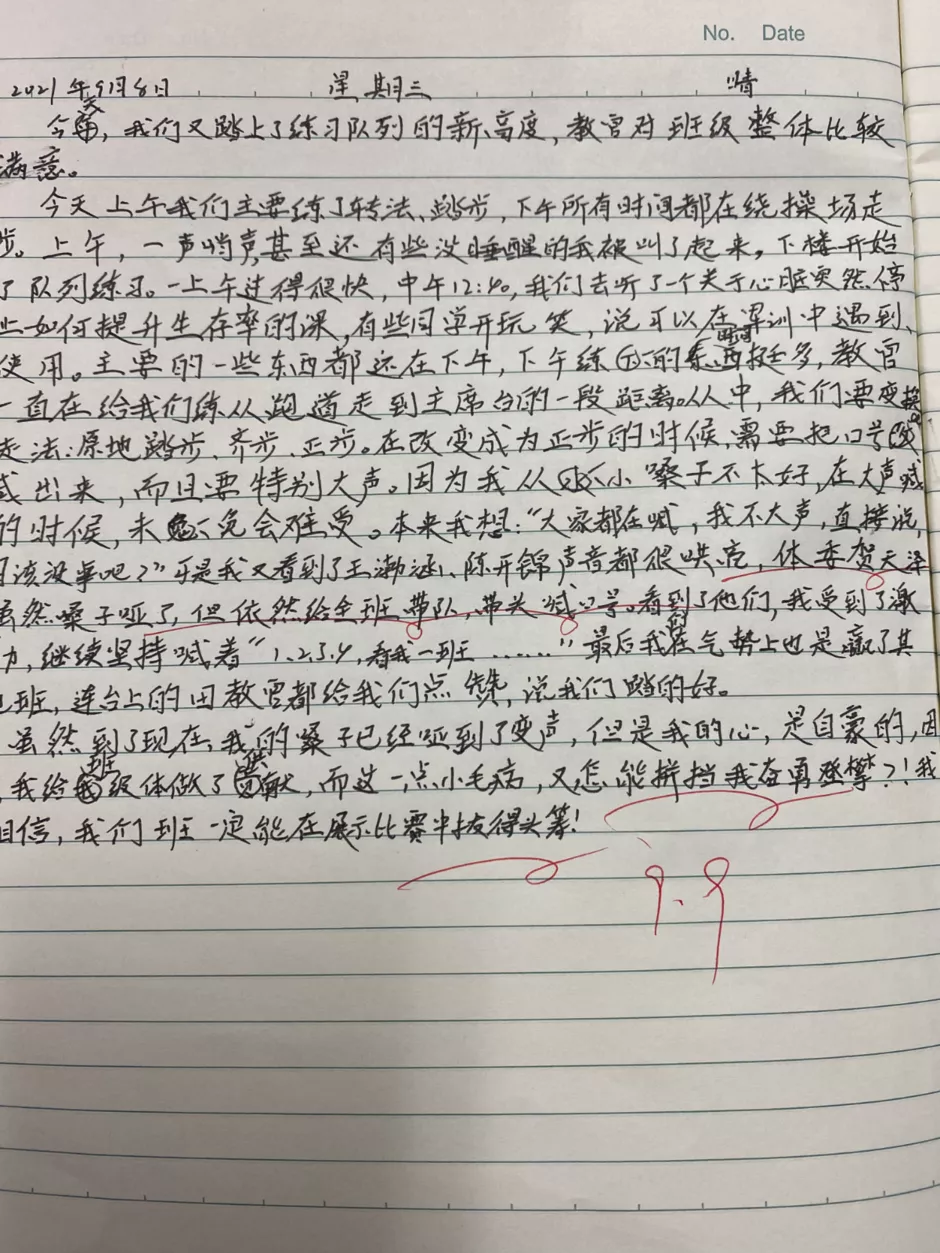 No. Date
2021年9月8日 星期三 晴
今天,我们又踏上了练习队列的新高度,教官对班级整体比较
满意。
今天上午我们主要练了转法、踏步,下午所有时间都在绕操场走
步。上午,一声哨声,甚至还有些没睡醒的我被叫了起来,下楼开始
了队列练习。一上午过得很快,中午12:40,我们去听了一个关于心脏突然停
止如何提升生存率的课,有些同学开玩笑,说可以在军训中遇到、
使用。主要的一些东西都还在下午,下午练的东西挺多,教官
一直在给我们练从跑道走到主席台的一段距离。从中,我们要变换
走法:原地踏步、齐步、正步。在改变成为正步的时候,需要把口号
喊出来,而且要特别大声。因为我从小嗓子不太好,在大声喊
的时候,未免会难受。本来我想:“大家都在喊,我不大声,直接说,
应该没事吧?”可是我又看到了王渤涵、陈开锦声音都很哄亮,体委贺天泽
虽然嗓子哑了,但依然给全班带队,带头喊口号。看到了他们,我受到了激
力,继续坚持喊着“1.2.3.4,看我一班……”最后我班在气势上也是赢了其
他班,连台上的田教官都给我们点赞,说我们踏的好。
虽然到了现在,我的嗓子已经哑到了变声,但是我的心,是自豪的,因
,我给班级体做了贡献,而这一点小毛病,又怎能拼挡我在勇登攀?!我
相信,我们班一定能在展示比赛中拔得头筹!
9.9